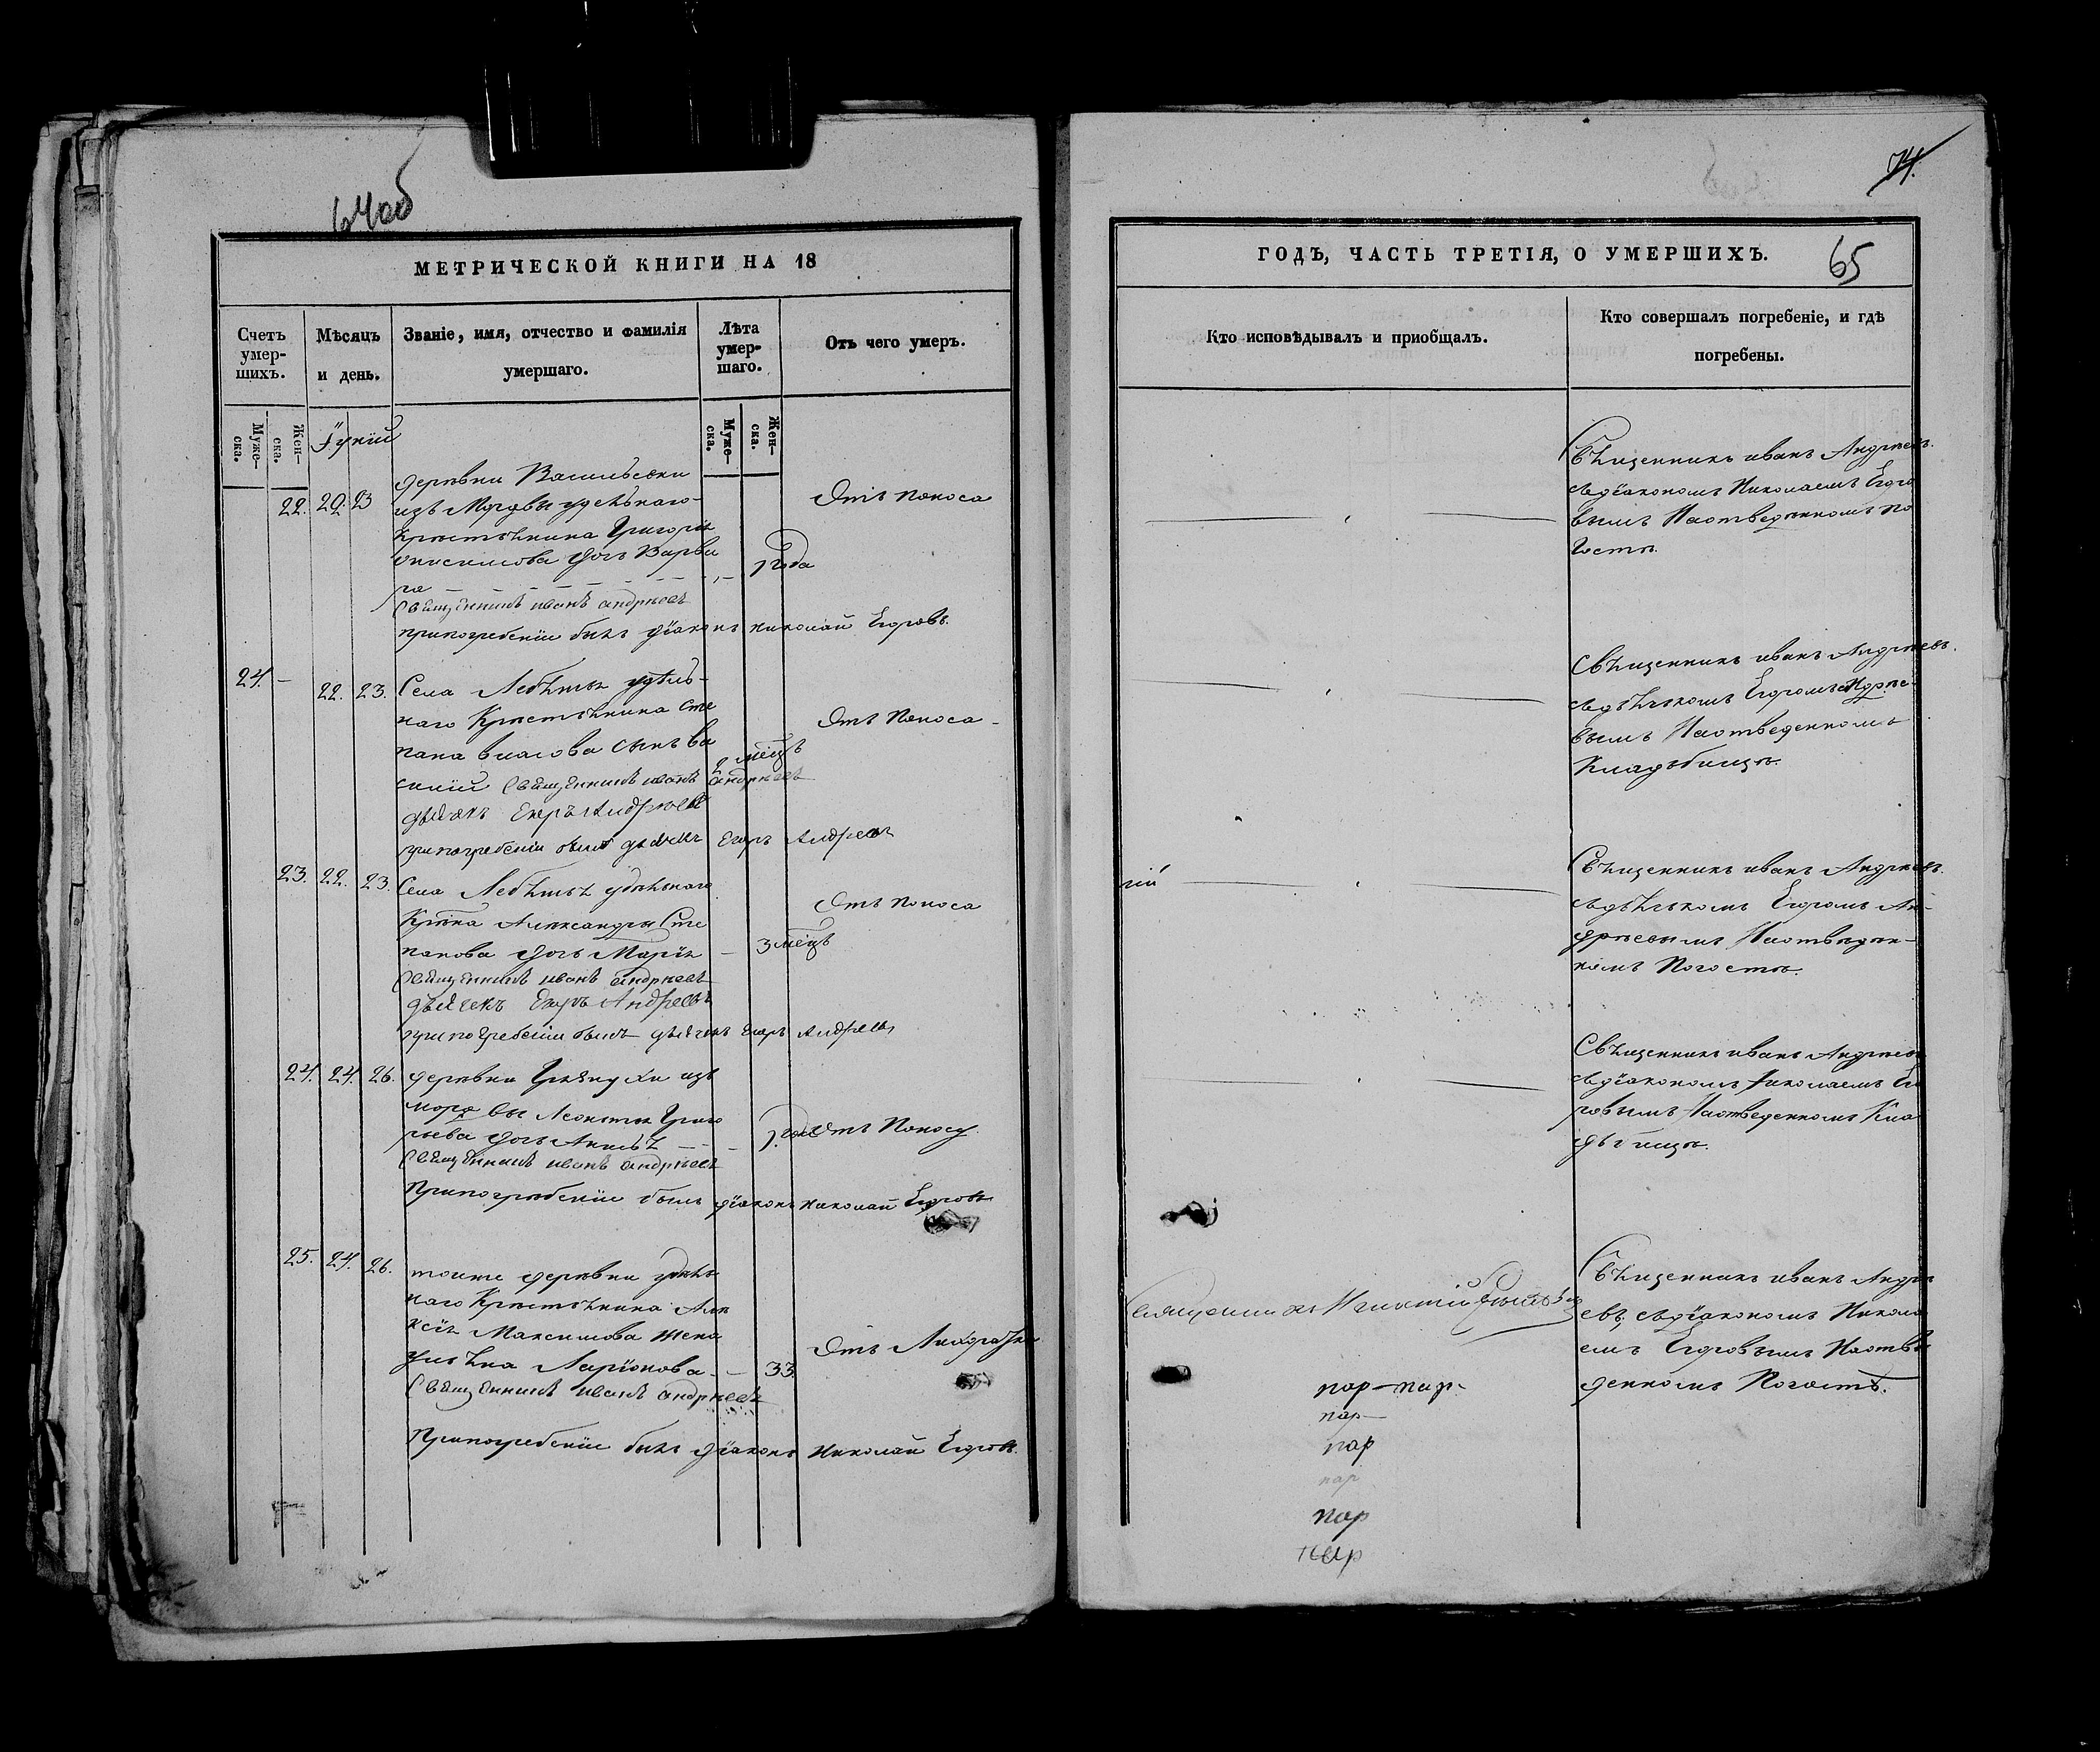 64 об
МЕТРИЧЕСКОЙ КНИГИ НА 18
Счетъ умер-шихъ.
Мѣсяцъ и день.
Званіе, имя, отчество и фамилія умершаго.
Лѣта умер-шаго.
Отъ чего умеръ.
Муже-ска.
Жен-ска.
Муже-ска.
Жен-ска.
22. 20. 23
деревни Васильевки
изъ Мордвы удельнаго
крестьянина Григорія
дочь Варва
ра
1 года
Отъ Поноса
Священникъ иванъ андреевъ
при погребеніи былъ діаконъ николай Егоровъ.
24. – 22. 23.
Села удѣль-
наго Крестьянина Сте
пана власова сынъ Ва
силій
2 мѣцъ
Отъ Поноса
Священникъ иванъ андреевъ
дьячекъ Егоръ Андреевъ
при погребеніи былъ дьячекъ Егоръ Андреевъ
23. 22. 23.
Села удельнаго
Крѣна Александры Сте
панова дочь Марія
3 мѣцъ
Отъ Поноса
Священникъ иванъ андреевъ
дьячекъ Егоръ Андреевъ
при погребеніи былъ дьячекъ Егоръ Андреевъ
24. 24. 26.
деревни изъ
мордвы Леонтія Григо
рьева дочь
Отъ Поносу.
Священникъ иванъ андреевъ
При погребеніи былъ діаконъ николай Егоровъ
25. 24. 26.
тоиже деревни удель
наго Крестьянина Але
ксія Максимова жена
Ларіонова – 33.
Отъ
Священникъ иванъ андреевъ
При погребеніи былъ діаконъ Николай Егоровъ.
74.
ГОДЪ, ЧАСТЬ ТРЕТІЯ, О УМЕРШИХЪ.
65
Кто исповѣдывалъ и приобщалъ.
Кто совершалъ погребеніе, и гдѣ погребены.
Священникъ иванъ Андреевъ.
съ діакономъ Николаемъ Егоро
вымъ На отведенномъ По
госте.
Священникъ иванъ Андреевъ.
съ дьячкомъ Егоромъ Андрее-
вымъ На отведенномъ
Кладбище.
Священникъ иванъ Андреевъ.
съ дьячкомъ Егоромъ Ан-
дреевымъ На отведен-
номъ Погосте.
Священникъ иванъ Андреевъ
съ діакономъ Николаемъ Его
ровымъ На отведенномъ Кла
дбище.
Священникъ
Священникъ иванъ Андре
евъ, съ діакономъ Никола
емъ Егоровымъ На отве
денномъ Погостѣ.
пар – пар –
пар –
пар
пар
пар
пар